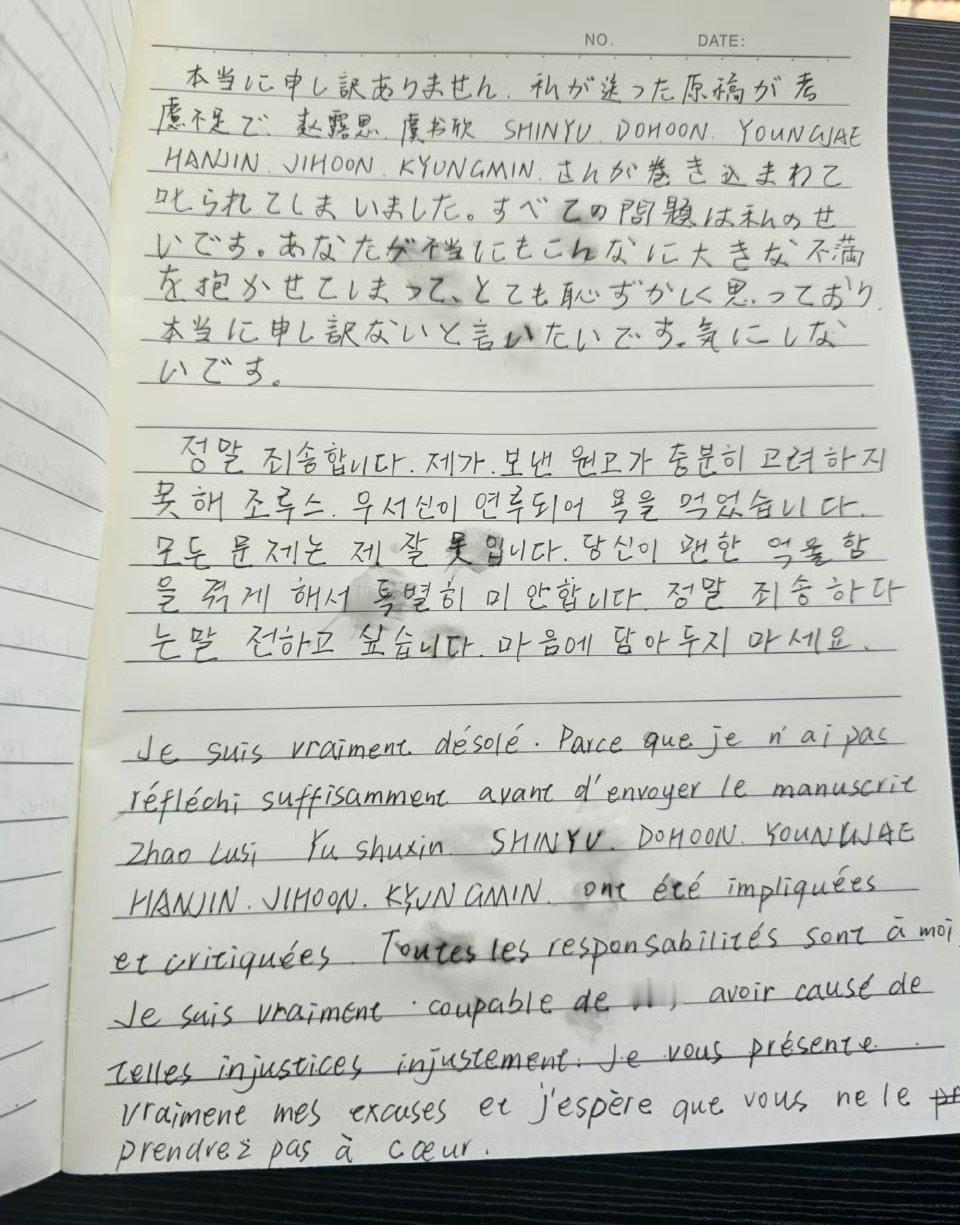 NO. DATE:
本当に申し訳ありません. 私が送った原稿が考
慮不足で、赵露思. 虞书欣 SHINYU. DOHOON. YOUNGJAE
HANJIN. JIHOON. KYUNGMIN. さんが巻き込まわて
叱られてしまいました。すべての問題は私のせ
いです。あなたが不当にもこんなに大きな不満
を抱かせてしまって、とても恥ずかしく思っており.
本当に申し訳ないと言いたいです。気にしな
いです。
정말 죄송합니다. 제가. 보낸 원고가 충분히 고려하지
못해 조루스. 우서신이 연루되어 욕을 먹었습니다.
모든 문제는 제 잘못입니다. 당신이 괜한 억울함
을 겪게 해서 특별히 미안합니다. 정말 죄송하다
는말 전하고 싶습니다. 마음에 담아두지 마세요.
Je suis vraiment désolé. Parce que je n'ai pas
réfléchi suffisamment avant d'envoyer le manuscrit
Zhao Lusi Yu shuxin. SHINYU. DOHOON. YOUNGJAE
HANJIN. JIHOON. KYUNGMIN. ont été impliquées
et critiquées. Toutes les responsabilités sont à moi
Je suis vraiment coupable de , avoir causé de
telles injustices injustement. Je vous présente
vraiment mes excuses et j'espère que vous ne le
prendrez pas à cœur.